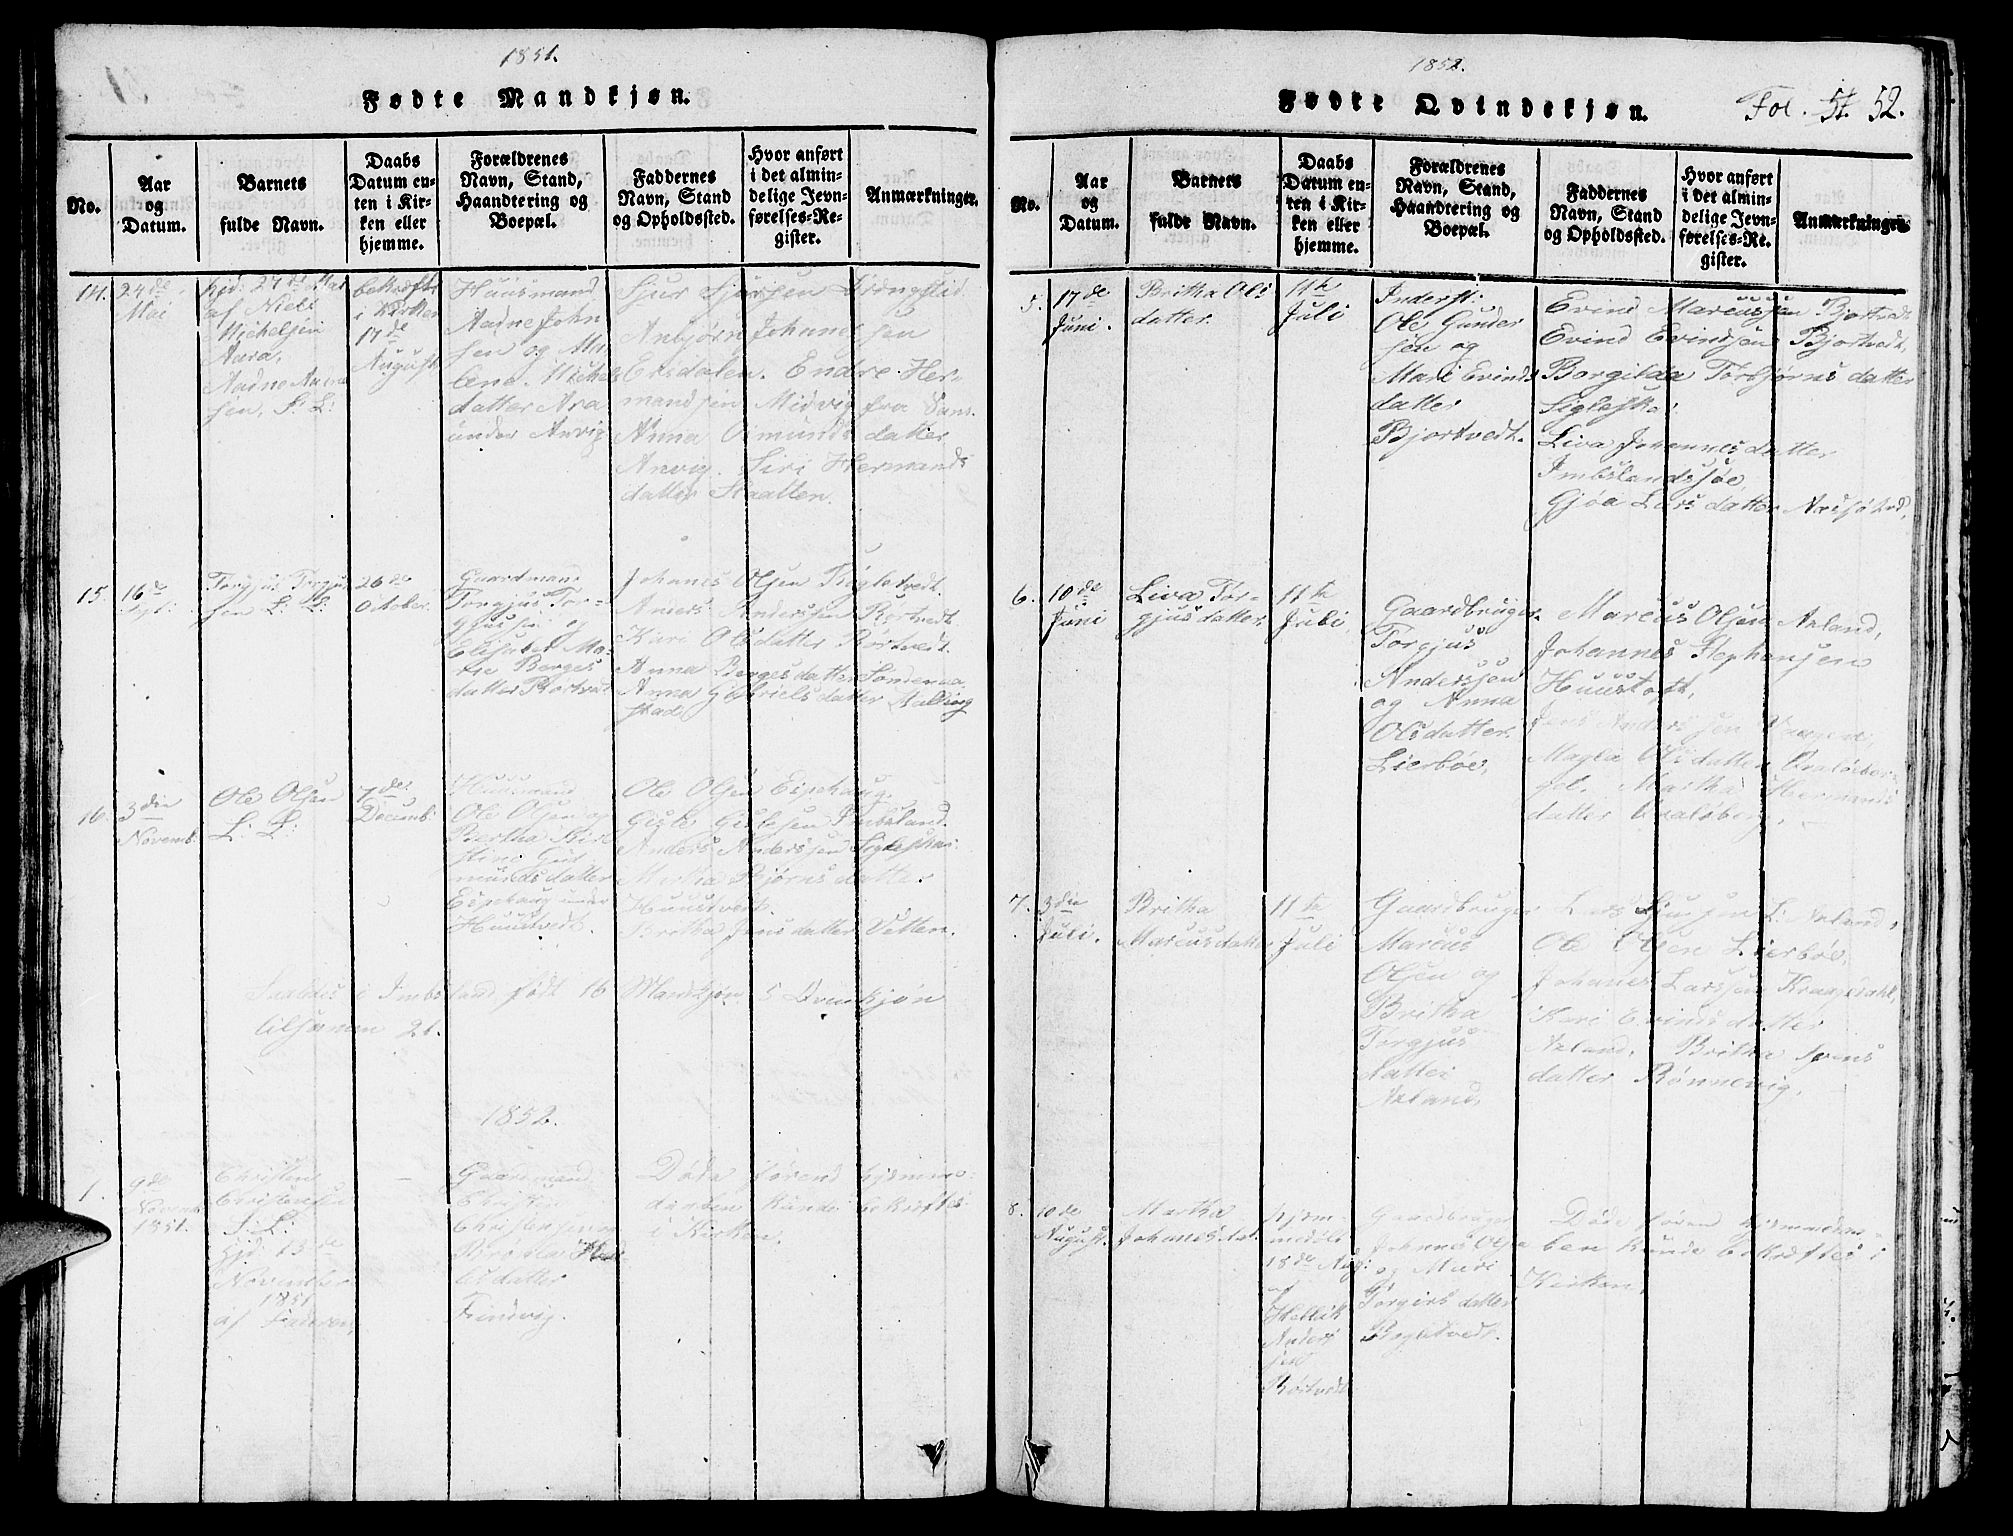 1851.
Fødte Mandkjøn.
No.
Aar
og
Datum.
Barnets
fulde Navn.
Daabs
Datum en-
ten i Kir-
ken eller
hjemme.
Forældrenes
Navn, Stand,
Haandtering og
Boepæl.
Faddernes
Navn, Stand
og Opholdssted.
Hvor anført
i det almin-
delige Jevn-
førelses-Re-
gister.
Anmærkninger.
14.
24de
Mai
hjd: 27de Mai
af Niels
Michelsen
Aara,
Aadne Aadne
sen, F: L:
bekræft:
i Kirken
17de
August
Huusmand
Aadne John
sen og Ma
lene Michels
datter Ara
under Anvig
Sjur Sjursen
Anbjørn Johannessen
Ersdalen. Endre Her-
mandsen Midvig fra Sans.
Anna Osmunds datter
Anvig. Siri Hermands
datter Staatten.
15.
16de
Sept:
Torgjus Torgju
sen L: L:
26de
October.
Gaardmand
Torgjus Tor-
gjussen og
Elisabet Ma-
rie Borges
datter Rørtvedt
Johanes Olsen
Anders Anderssen Rørtvedt.
Kari Olsdatter Rørtvedt.
Anna Borges datter Søndenaa
Anna Gabriels datter
stad
16.
3die
Novemb.
Ole Olsen
L: L:
7de
Decemb:
Huusmand
Ole Olsen og
Bertha Kir
stine Gud
munds datter
Eipehaug under
Huustvedt.
Ole Olsen Eipehaug.
Gisle Gislesen Imbsland
Anders Anderssen Sigleskar
Martha Bjørns datter
Huustvedt.
Britha Jens datter Vetten.
Saaledes i Imbsland født 16 Mandkjøn 5 Qvindkjøn
Tilsamen 21.
1852.
1.
9de
Novemb
1851.
Christen
Christensen
F: L:
hjd: 13de
November
1851
af Faderen,
Gaardmand
Christen
Christensen og
Britha
datter
Findvig.
Døde førend hjemme-
daaben kunde bekræftes
i Kirken.
1852.
Fødte Qvindekjøn.
Fol. 51. 52.
No.
Aar
og
Datum.
Barnets
fulde Navn.
Daabs
Datum en-
ten i Kir-
ken eller
hjemme.
Forældrenes
Navn, Stand,
Haandtering og
Boepæl.
Faddernes
Navn, Stand
og Opholdssted.
Hvor anført
i det almin-
delige Jevn-
førelses-Re-
gister.
Anmærkninger
5.
17de
Juni.
Britha Ols
datter.
11te
Juli
Inderst:
Ole Gunder
sen og
Mari Evinds
datter
Bjortvedt.
Evind Marcussen Bjortvedt
Evind Evindsen Bjortvedt,
Borgilda Torbjørns datter
Sigleskar
Liva Johannes datter
Imbslandssøe,
Gjøa Lars datter
6.
10de
Juni
Liva Tor-
gjus datter.
11te
Juli.
Gaardbruger.
Torgjus
Anderssen
og Anna
Olsdatter.
Lierbøe,
Marcus Olsen Axland,
Johannes Stephensen
Huustoft,
Jens Anderssen Vaagen,
Magla Olsdatter Qvaløeber-
fel. Martha Hermands
datter Qvaløberg.
7.
3die
Juli.
Britha
Marcusdatter
11te
Juli
Gaardbruger
Marcus
Olsen og
Britha
Torgjus
datter
Axland,
Lars Sjursen L: Axland,
Ole Olsen Lierbøe,
Johanes Larssen Kraagedahl,
Kari Evinds datter
Axland, Britha Svens
datter Rønnevig,
8.
10de
August.
Martha
Johanes dat.
hjem-
medøbt
18de Aug:
af
Hellik
Anders
sen
Rørtvedt
Gaardbruger
Johannes Olsen
og Mari
Torgirs datter
Døde føren hjemmedaa-
ben kunde bekræftes i
Kirken,